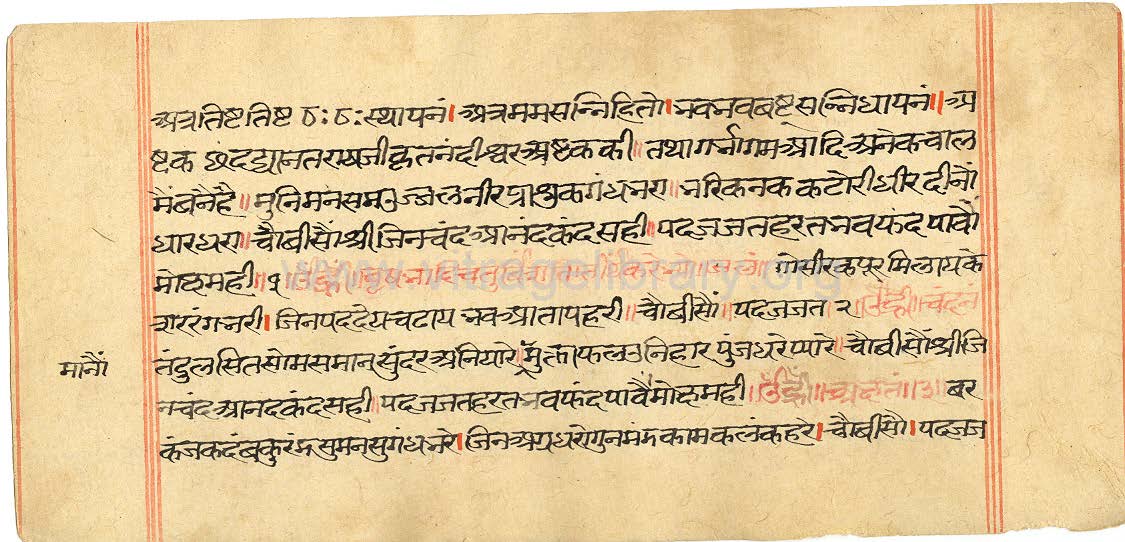 अत्रातिष्टतिष्ट ठः ठः स्थापनं। अत्रममसन्निहितो। नवनवबषट्सन्निधापनं॥ अ
ष्टक छंदद्यानतरायजीकृतनंदीश्वरअष्टककी॥ तथागर्नागमआदिअनेकचाल
मैंबनैहै॥ मुनिमनसमउज्जलनीरप्राशुकगंधनरा॥ नरिकनककटोरीधीरदीनौं
धारधरा॥ चौबीसौंश्रीजिनचंदआनंदकंदसही॥ पदजजतहरतनवफंदपावैं
मोक्षमही॥१॥ गोसीरकपूरमिलायके
शररंगनरी। जिनपददेयचढाय नवआतापहरी॥ चौबीसौं॥ पदजजत॥२॥ चंदनं
तंदुलसितसोमसमानसुंदरअनियारे॥ मुक्ताफलउनिहारपुंजधरेप्यारे॥ चौबीसौंश्रीजि
मानौं
नचंदआनदकंदसही॥ पदजजतहरतनवफंदपावैंमोक्षमही॥ अक्षतं॥३॥ बर
कंजकदंबकुरंमसुमनसुगंधनरे। जिनअग्रधरोगुनमंमकामकलंकहरे। चौबीसौ। पदजज
www.vitragelibrary.org